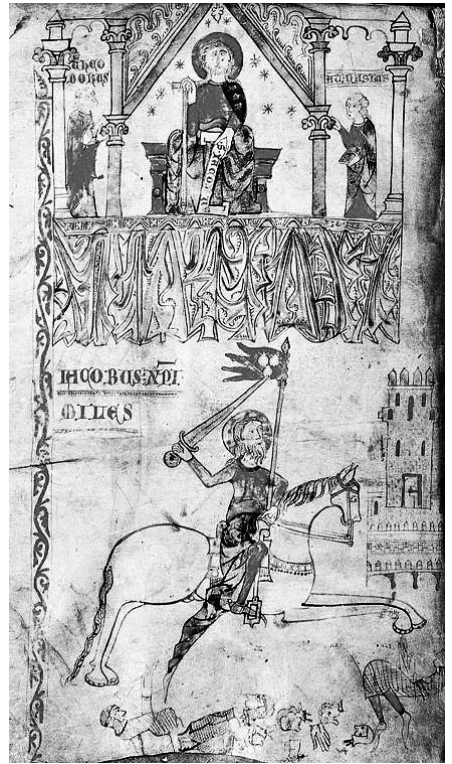 THEO
DORUS
IACOBUS·XP̅I
MILES